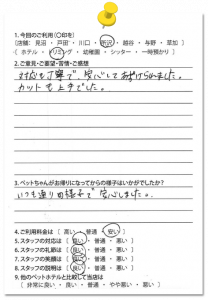 1.今回のご利用(○印を)
[店舗: 見沼 ・ 戸田 ・ 川口 ・ 所沢 ・ 越谷 ・ 与野 ・ 草加 ]
( ホテル ・ トリミング ・ 幼稚園 ・ シッター ・ 一時預かり )
2.ご意見・ご要望・苦情・ご感想
対応も丁寧で、安心しておあずけられました。
カットも上手でした。
3.ペットちゃんがお帰りになってからの様子はいかがでしたか?
いつも通りの様子で安心しました。
4.ご利用料金は [ 高い ・ 普通 ・ 安い ]
5.スタッフの対応は [ 良い ・ 普通 ・ 悪い ]
6.スタッフの礼節は [ 良い ・ 普通 ・ 悪い ]
7.スタッフの笑顔は [ 良い ・ 普通 ・ 悪い ]
8.スタッフの説明は [ 良い ・ 普通 ・ 悪い ]
9.他のペットホテルと比較して当店は
( 非常に良い ・ 良い ・ 普通 ・ やや悪い ・ 悪い )